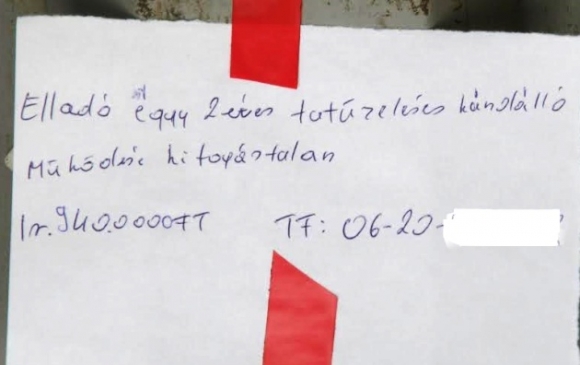 Elladó égyy 2 éves fatűzelésés kándálló
Müködése kifogástalan
Ir. 940.0000FT TF: 06-20-